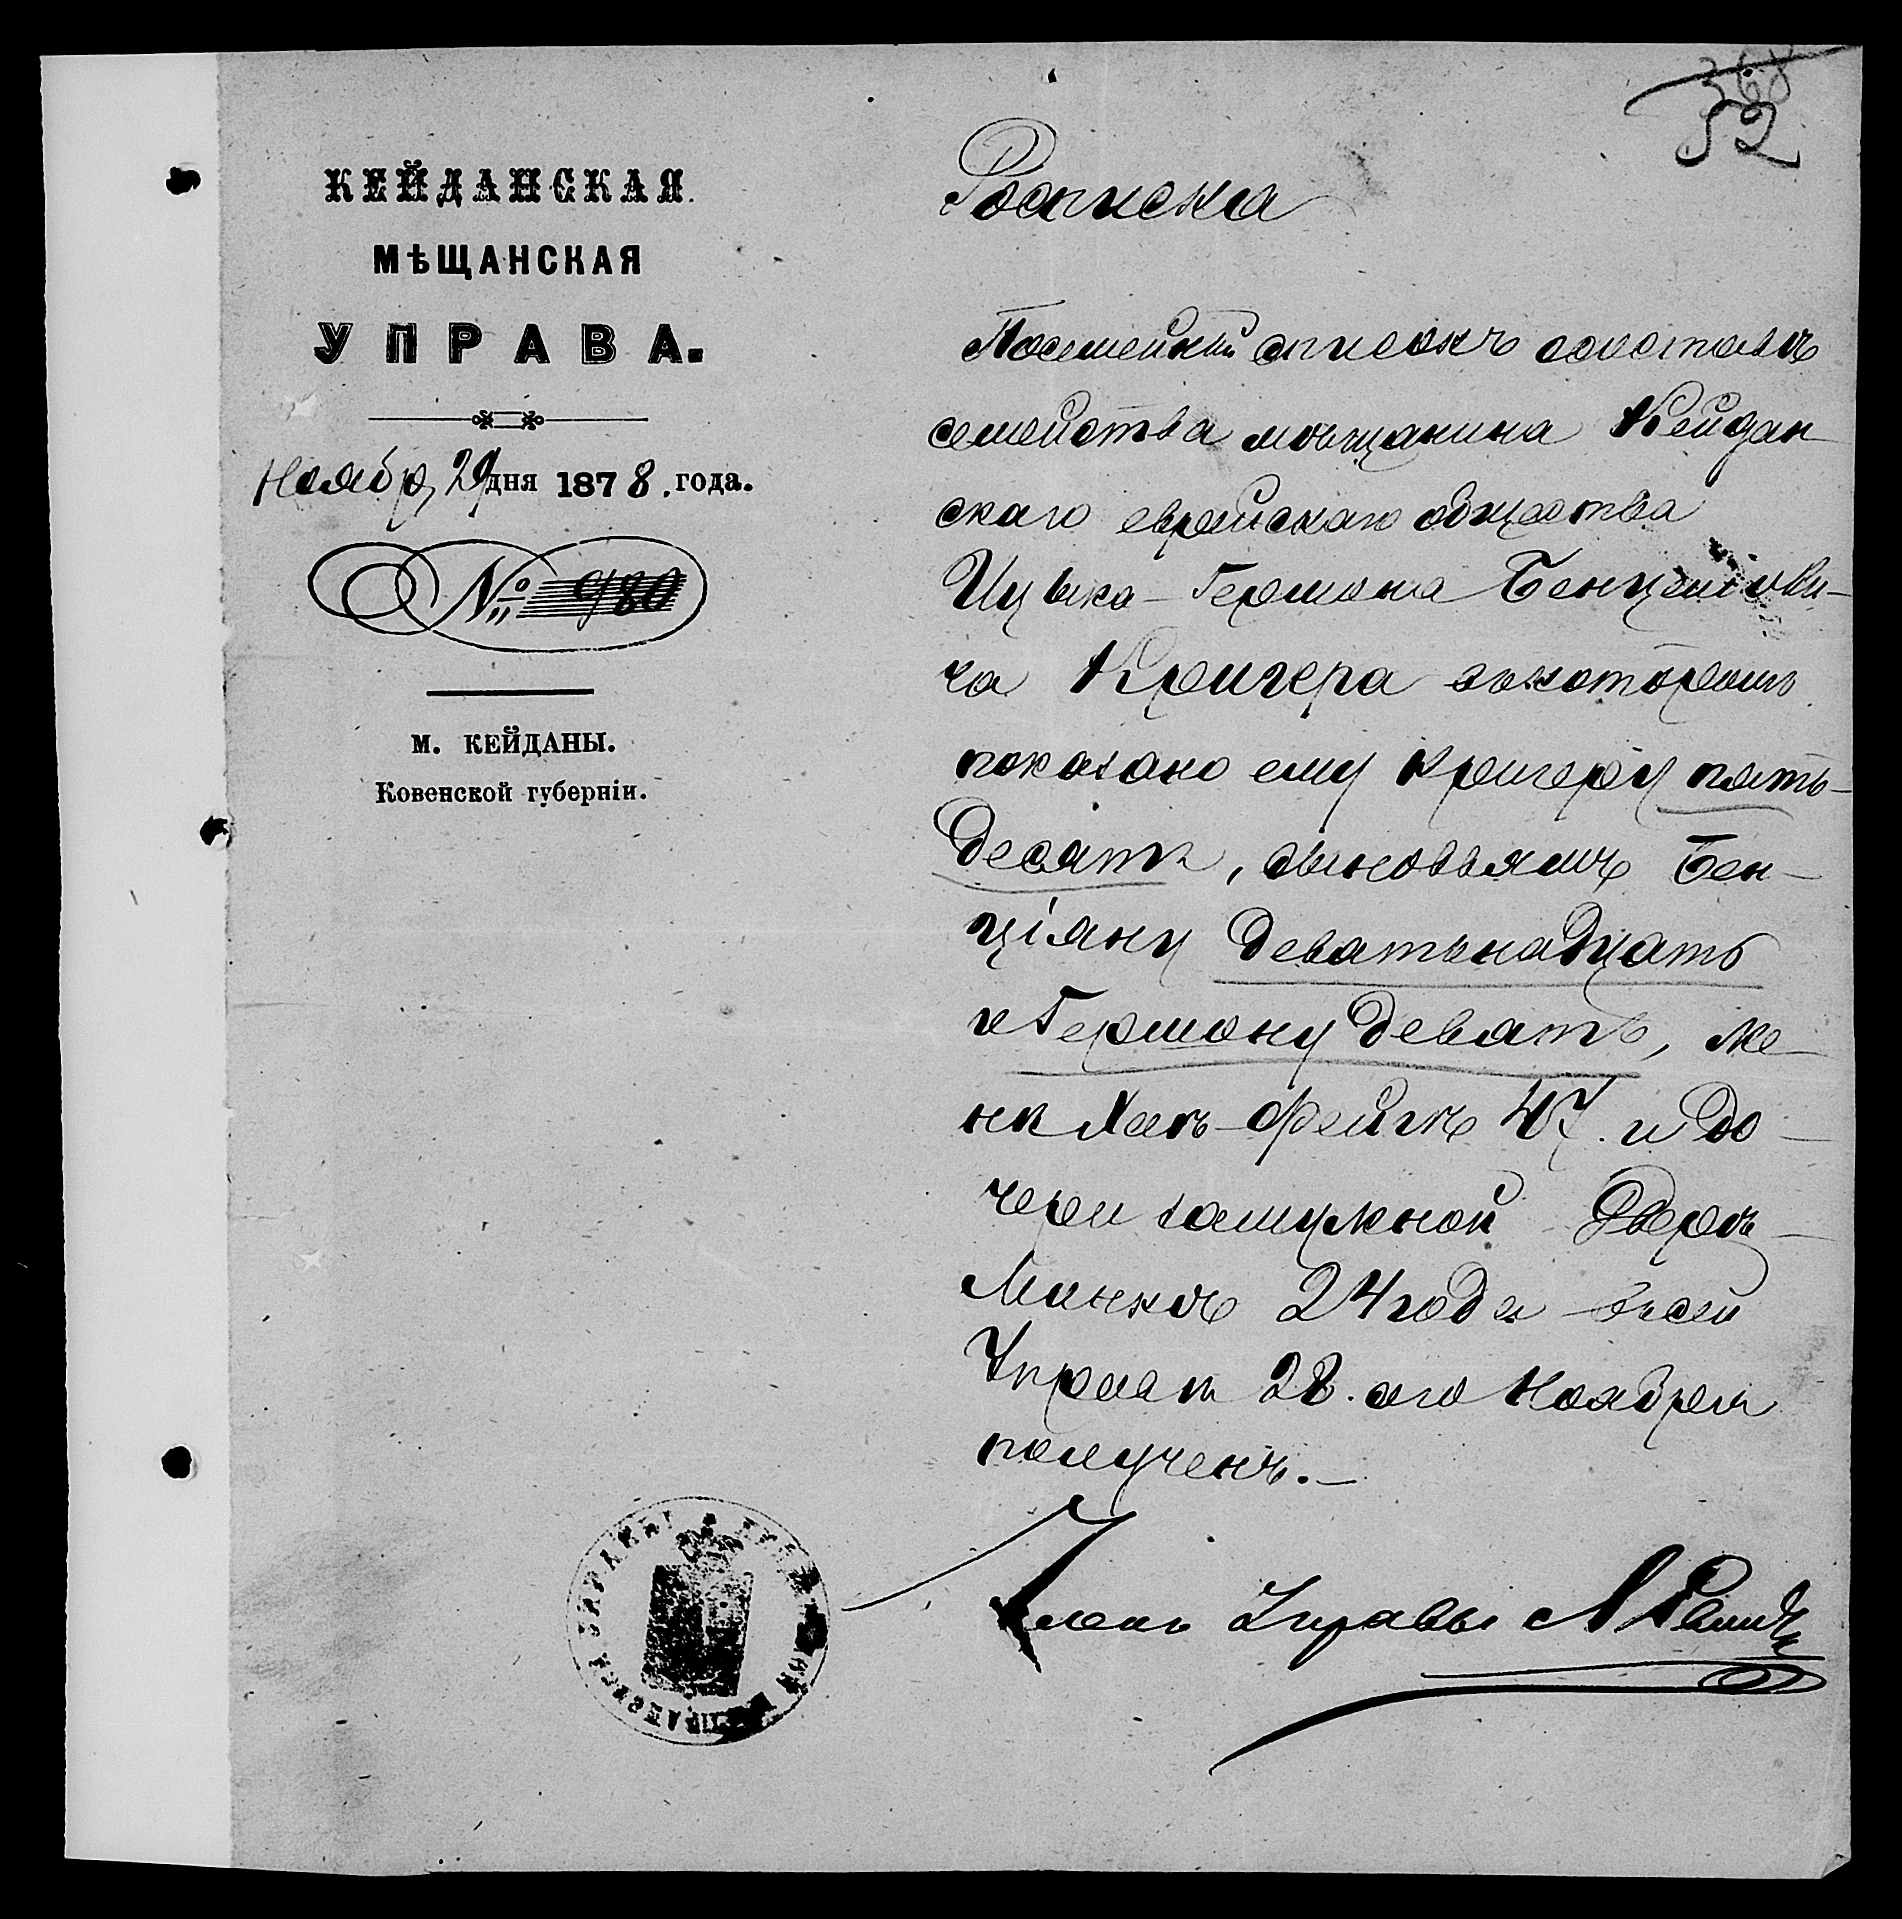 368
52
КЕЙДАНСКАЯ
МѢЩАНСКАЯ
УПРАВА.
Ноябр. 29 дня 1878. года.
№ 980
м. КЕЙДАНЫ.
Ковенской губернiи.
Росписка
Посемейный списокъ о составѣ
семейства мѣщанина Кейдан
скаго еврейскаго общества
Ицыка-Гермона Бенцелiови-
ча Кригера въ которомъ
показано ему Кригеру пять-
десятъ, сыновьямъ Бен-
цiяну девятьнадцать
и Гермону девять, же-
нѣ Хаѣ-Фейгѣ 47. и до-
чери замужной Дверъ-
Минкѣ 24 года въ сей
Управѣ 28. сего Ноября
полученъ.-
Членъ Управы